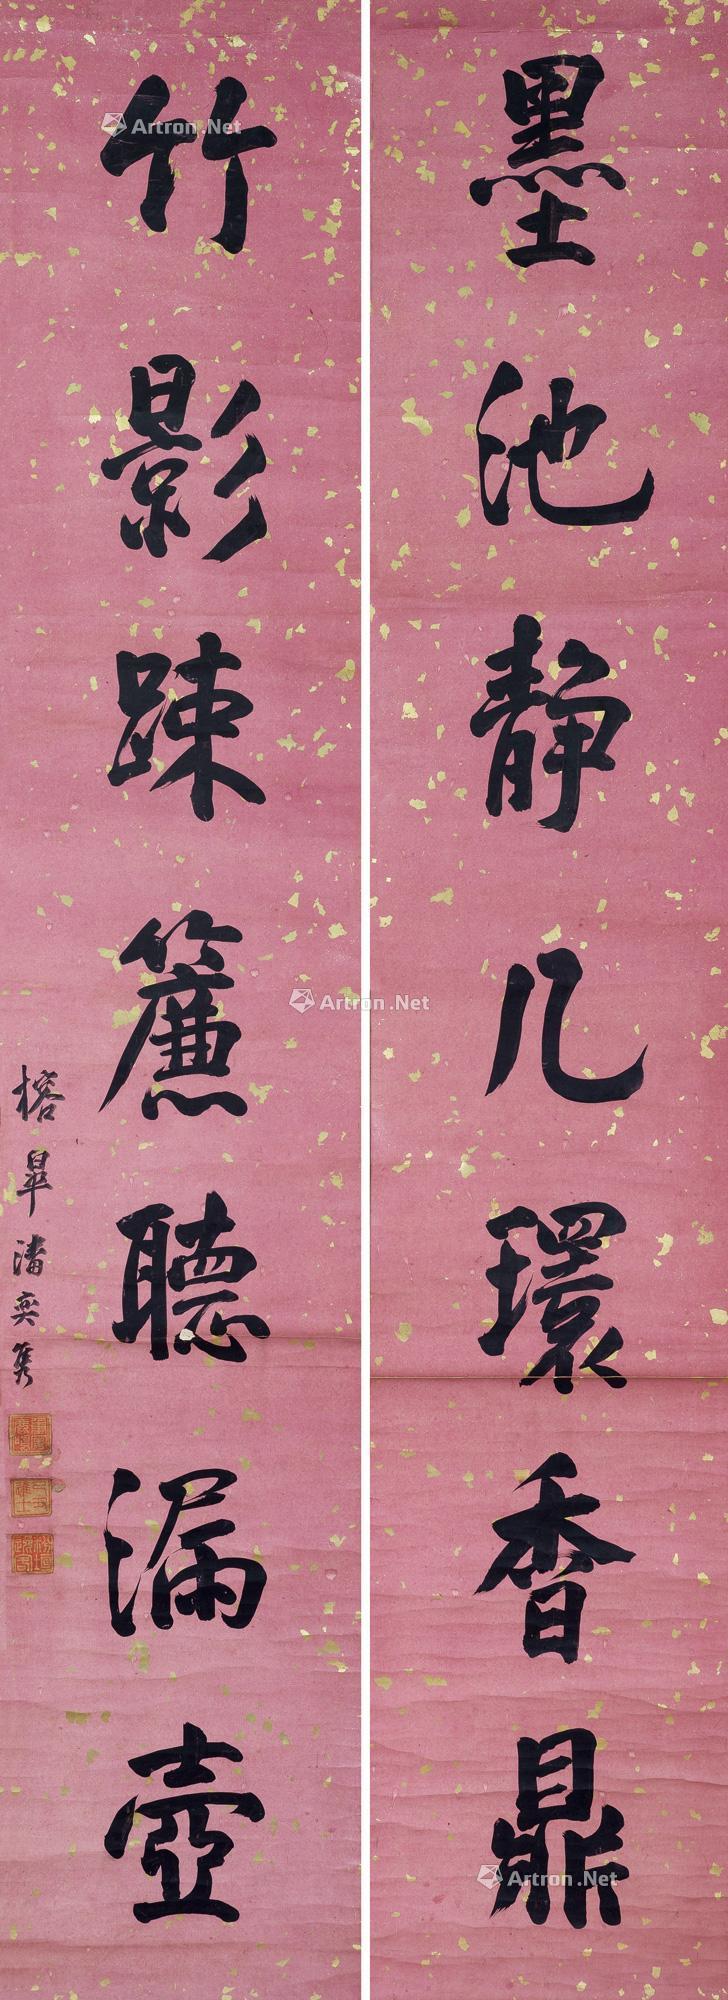 墨池静几環香鼎
竹影踈簾聽漏壺
榕皐潘奕雋
Artron.Net
Artron.Net
Artron.Net